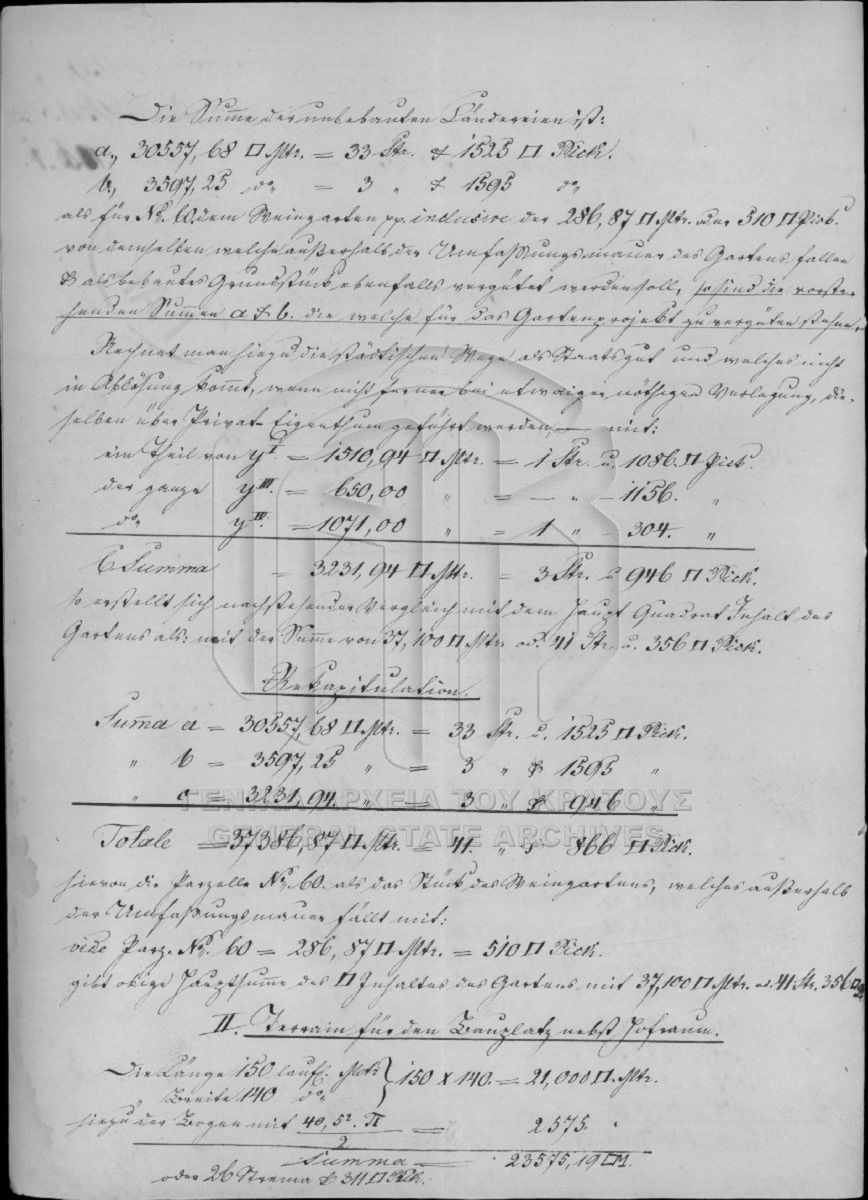 Die Summe der unbebauten Ländereien ist:
a., 30557,68 □ Mtr. = 33 Str. & 1525 □ Pick.
b., 3597,25 do = 3 " & 1595 do
als für No. 60. dem Weingarten pp. inclusive der 286,87 □ Mtr. oder 510 □ Pick.
von demselben welche außerhalb der Umfaßungsmauer des Gartens fallen
& als bebautes Grundstück ebenfalls vergütet werden soll, so sind die vorste-
henden Summen a & b. die welche für das Gartenprojekt zu vergüten stehen.
Rechnet man hiezu die städtischen Wege als Staatsgut und welches nicht
in Ablösung kommt, wenn nicht ferner bei etwaiger nöthigen Verlegung, die-
selben über Privat-Eigenthum geführt werden, — mit:
ein Theil von y I. = 1510,94 □ Mtr. = 1 Str. u. 1086 □ Pick.
der ganze y III. = 650,00 " = — " — 1156. "
do y IV. = 1071,00 " = 1 " — 304. "
C Summa = 3231,94 □ Mtr. = 3 Str. u 946 □ Pick.
so erstellt sich nachstehender Vergleich mit dem Haupt Quadrat Inhalt des
Gartens als: mit der Summe von 37,100 □ Mtr od. 41 Str. u. 356 □ Pick.
Rekapitulation.
Summa a = 30557,68 □ Mtr. = 33 Str. u. 1525 □ Pick.
" b = 3597,25 " = 3 " & 1595 "
" c = 3231,94. " = 3 " & 946 "
ΓΕΝΙΚΑ ΑΡΧΕΙΑ ΤΟΥ ΚΡΑΤΟΥΣ
GENERAL STATE ARCHIVES
Totale = 37386,87 □ Mtr. = 41. " & 866 □ Pick.
hievon die Parzelle No. 60. als das Stück des Weingartens, welches außerhalb
der Umfaßungsmauer fällt mit:
vide Parz. No. 60 = 286,87 □ Mtr. = 510 □ Pick.
gibt obige Hauptsumme des □ Inhaltes des Gartens mit 37,100 □ Mtr. od. 41 Str. 356 □
II. Terrain für den Bauplatz nebst Hofraum.
Die Länge 150 lauf. Mtr } 150 x 140. = 21,000 □. Mtr.
" Breite 140 do
hiezu der Bogen mit 40,5². π / 2 = 2575. "
Summa = 23575,19 □ M.
oder 26 Strema & 311 □ Pick.